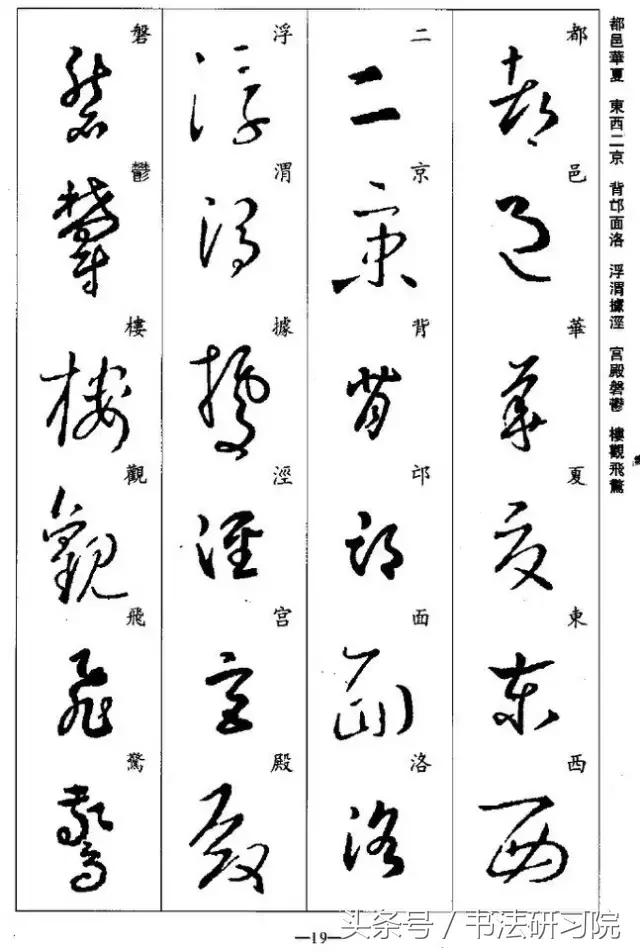 都邑華夏 東西二京 背邙面洛 浮渭據涇 宮殿磐鬱 樓觀飛驚
都邑華夏東西
二京背邙面洛
浮渭據涇宮殿
磐鬱樓觀飛驚
—19—
头条号／书法研习院